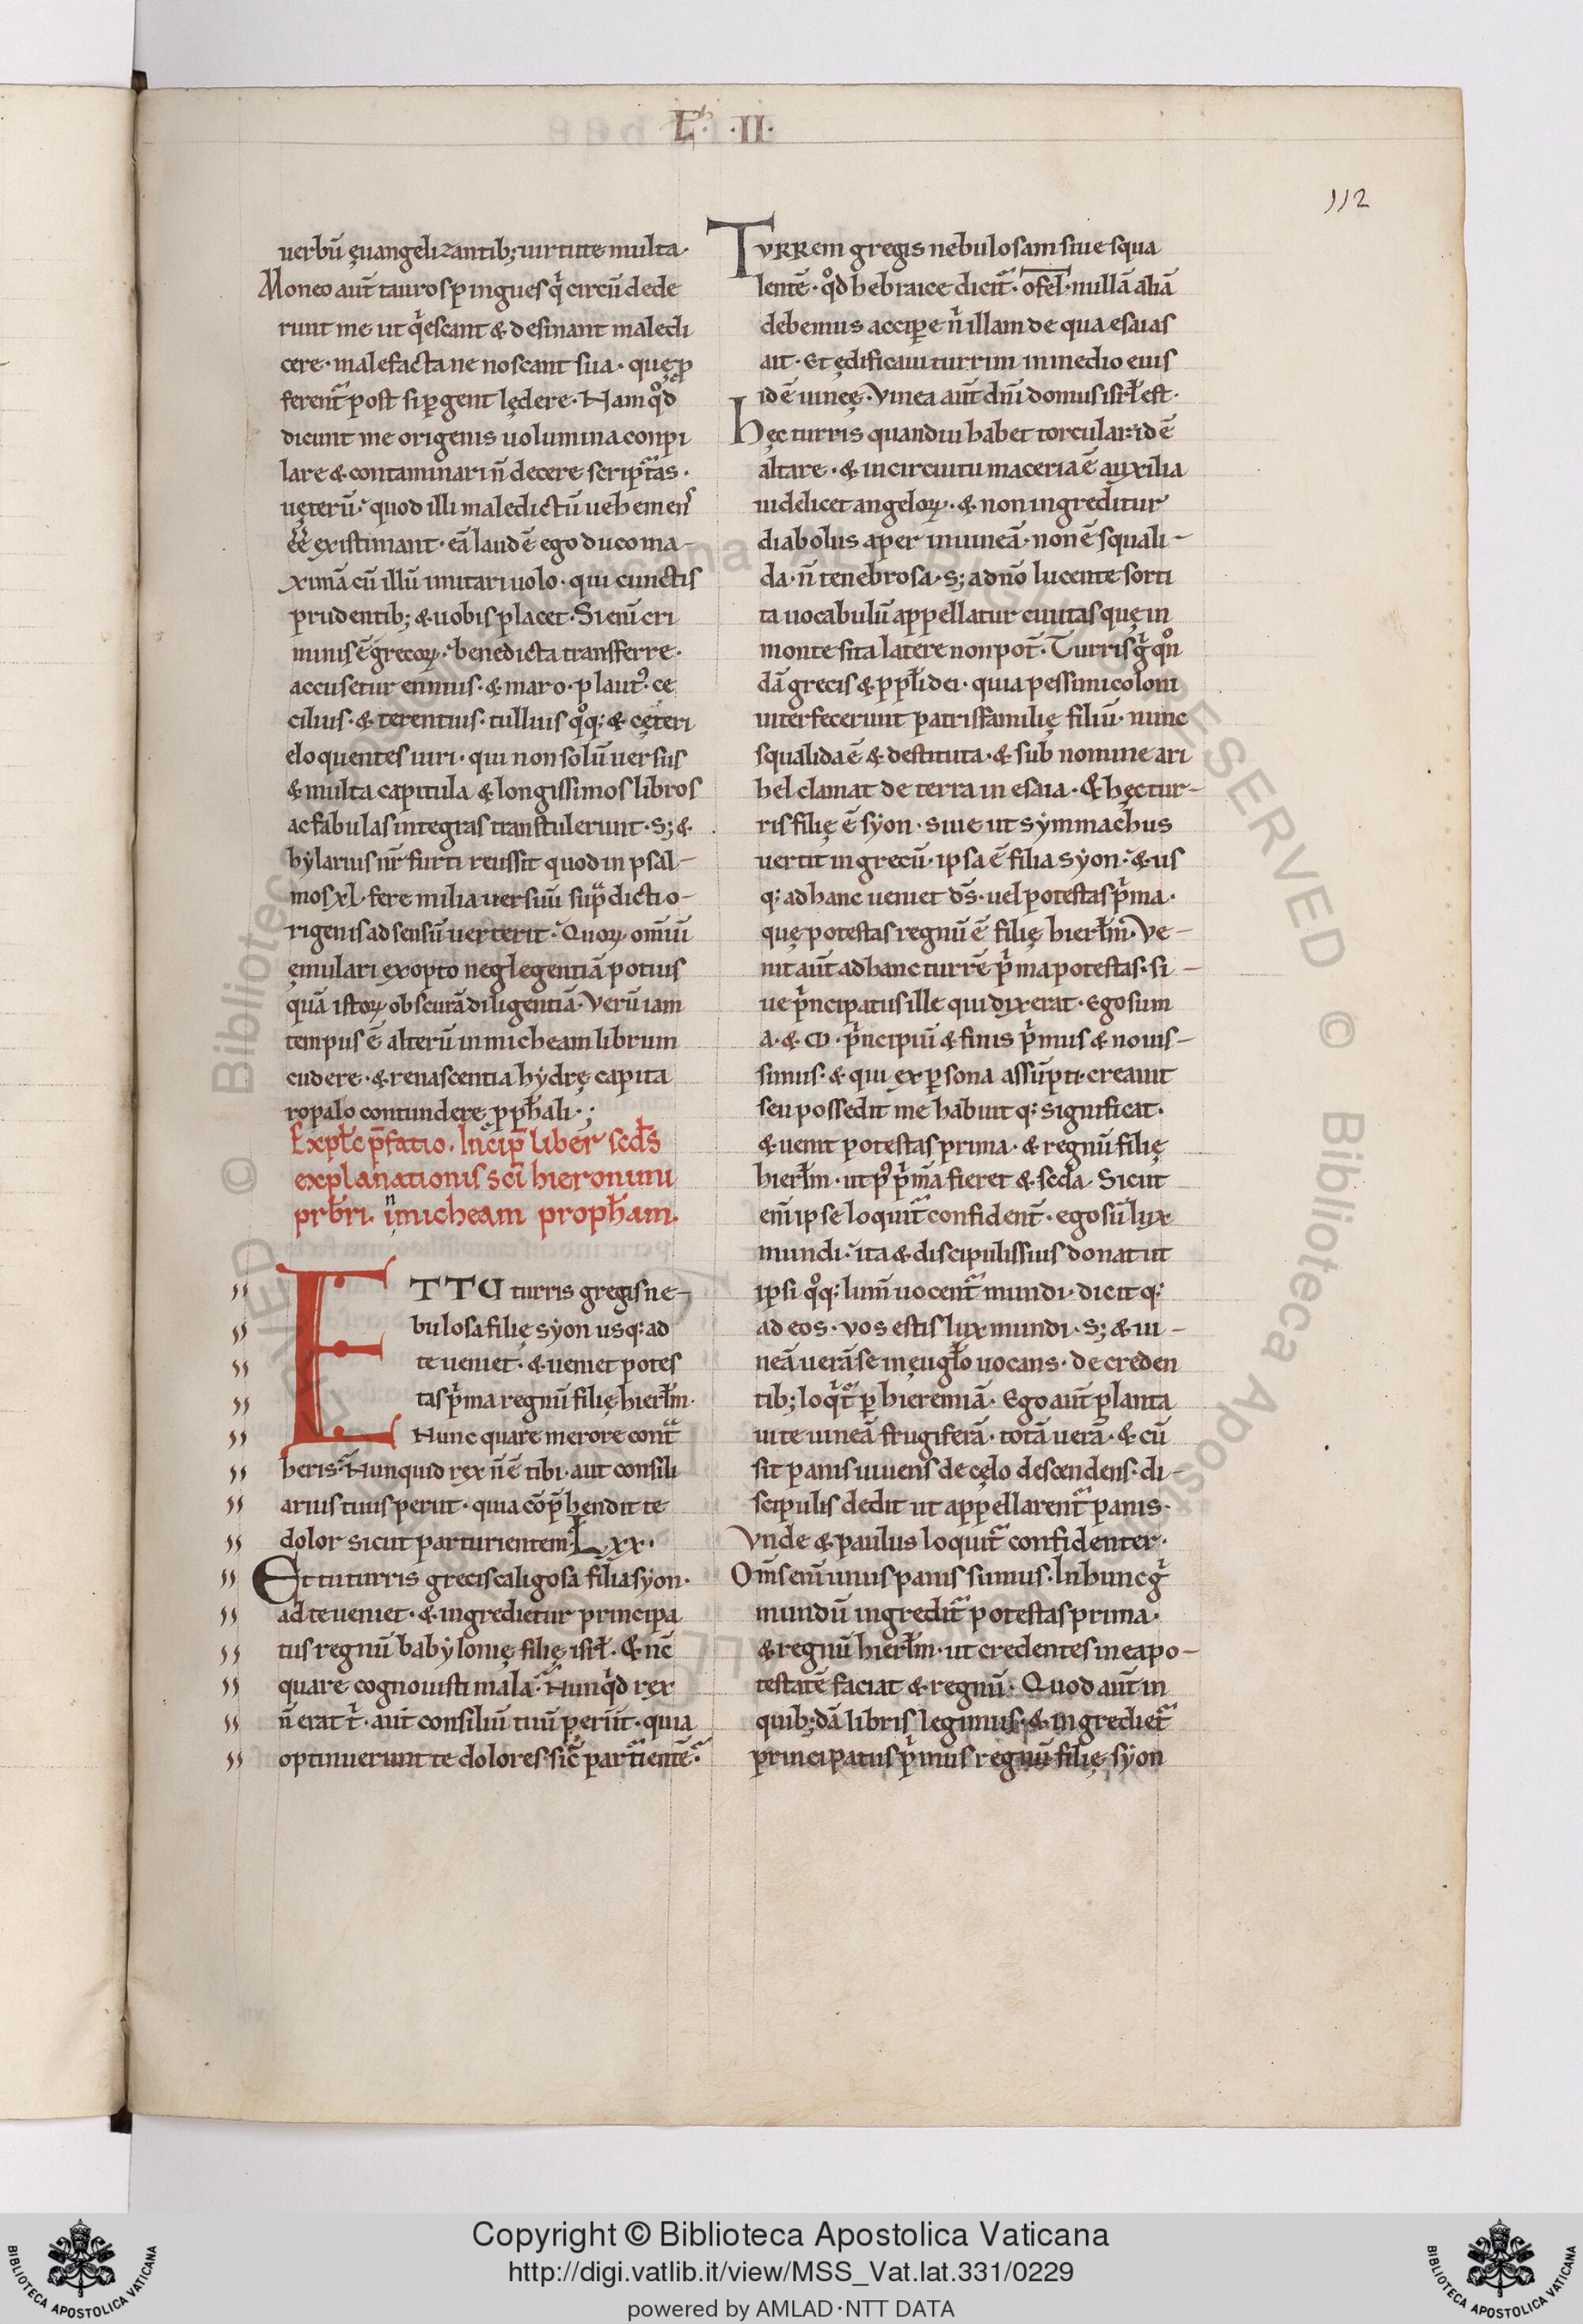 L · II ·
112
uerbū ęuangelizantib; uirtute multa ·
Moneo aut̄ tauros pingues qi circū dede
runt me ut qiescant & desinant maledi
cere · malefacta ne noscant sua · que p̱
ferent̄ post si p̱gent lędere · Nam qd̄
dicunt me origenis uolumina conpi
lare & contaminari n̄ decere script̄as ·
uęterū · quod illi maledictū uehemen̄
ēē existimant · eā laudē ego duco ma-
ximā cū illū imitari uolo · qui cunctis
prudentib; & uobis placet · Si enī cri
minis ē grecoꝝ · benedicta transferre ·
accusetur ennius · & maro · plautꝰ · ce
cilius · & terentius · tullius qoq: & cęteri
eloquentes uiri · qui non solū uersus
& multa capitula & longissimos libros
ac fabulas integras transtulerunt · S; &
hylarius nr̄ furti reus sit quod in psal-
mos xl · fere milia uersuū sup̄dicti o-
rigenis ad sensū uerterit · Quoꝝ omiū
ęmulari exopto neglegentiā potius
quā istoꝝ obscurā diligentiā · Verū iam
tempus ē alterū in micheam librum
cudere · & renascentia hydrę capita
ropalo contundere p̱ph̄ali · ;
Explic p̄fatio · Incip̄ liber sc̄ds
explanationis sc̄i hieronimi
prb̄ri · in micheam proph̄am ·
ET TU turris gregis ne-
bulosa filię syon usq: ad
te ueniet · & ueniet potes
tas pima regnū filię hierl̄m ·
Nunc quare merore cont̄
heris · Nunquid rex n̄ ē tibi · aut consili
arius tuus periit · quia cōp̄hendit te
dolor sicut parturientem · Lxx ·
Et tu turris grecis caligosa filia syon ·
ad te ueniet · & ingredietur principa
tus regnū babylonię filię isrl̄ · & nc̄
quare cognouisti mala · Nunqid rex
n̄ erat t · aut consiliū tuū periit · quia
optinuerunt te dolores sic̄ part̄ientē ·
TVRREm gregis nebulosam siue squa
lentē · qd̄ hebraice dicit̄ · ofel · nullā aliā
debemus accipe ni illam de qua esaias
ait · Et ędificaui turrim in medio eius
id ē uineę · Vinea aut̄ dn̄i domus isrl̄ est ·
Hęc turris quandiu habet torcular · id ē
altare · & in circuitu maceria ē auxilia
uidelicet angeloꝝ · & non ingreditur
diabolus aper in uineā · non ē squali-
da · n̄ tenebrosa · S; a dn̄o lucente sorti
ta uocabulū appellatur ciuitas quę in
monte sita latere non pot̄ · Turris g qon
dā grecis & p̱pl̄i dei · quia pessimi coloni
interfecerunt patrisfamilię filiū · nunc
squalida ē & destituta · & sub nomine ari
hel clamat de terra in esaia · & hęc tur-
ris filię ē syon · siue ut symmachus
uertit in grecū · ipsa ē filia syon · & us
q: ad hanc ueniet ds̄ · uel potestas pima ·
quę potestas regnū ē filię hierl̄m · Ve-
nit aut̄ ad hanc turrē pima potestas · si-
ue pincipatus ille qui dixerat · Ego sum
A · & ω · pincipiū & finis pimus & nouis-
simus · & qui ex p̱sona assūpti · creauit
seu possedit me habuit q: significat ·
& uenit potestas prima · & regnū filię
hierl̄m · ut pꝰ pimā fieret & sc̄da · Sicut
enī ipse loquit̄ confident̄ · ego sū lux
mundi · ita & discipulis suis donat ut
ipsi qoq: lum̄ uocent̄ mundi · dicit q:
ad eos · vos estis lux mundi · S; & ui-
neā uerā se in eugl̄o uocans · de creden
tib; loqit̄ p̱ hieremiā · Ego aut̄ planta
ui te uineā frugiferā · totā uerā · & cū
sit panis uiuens de cęlo descendens · di-
scipulis dedit ut appellarent̄ panis ·
Vnde & paulus loquit̄ confidenter ·
Om̄s enī unus panis sumus · In hunc g
mundū ingredit̄ potestas prima ·
& regnū hierl̄m · ut credentes in ea po-
testatē faciat & regnū · Quod aut̄ in
quib;dā libris legimus · & ingrediet̄
principatus pimus regnū filię syon
Copyright © Biblioteca Apostolica Vaticana
http://digi.vatlib.it/view/MSS_Vat.lat.331/0229
powered by AMLAD · NTT DATA
BIBLIOTECA APOSTOLICA VATICANA
BIBLIOTECA APOSTOLICA VATICANA